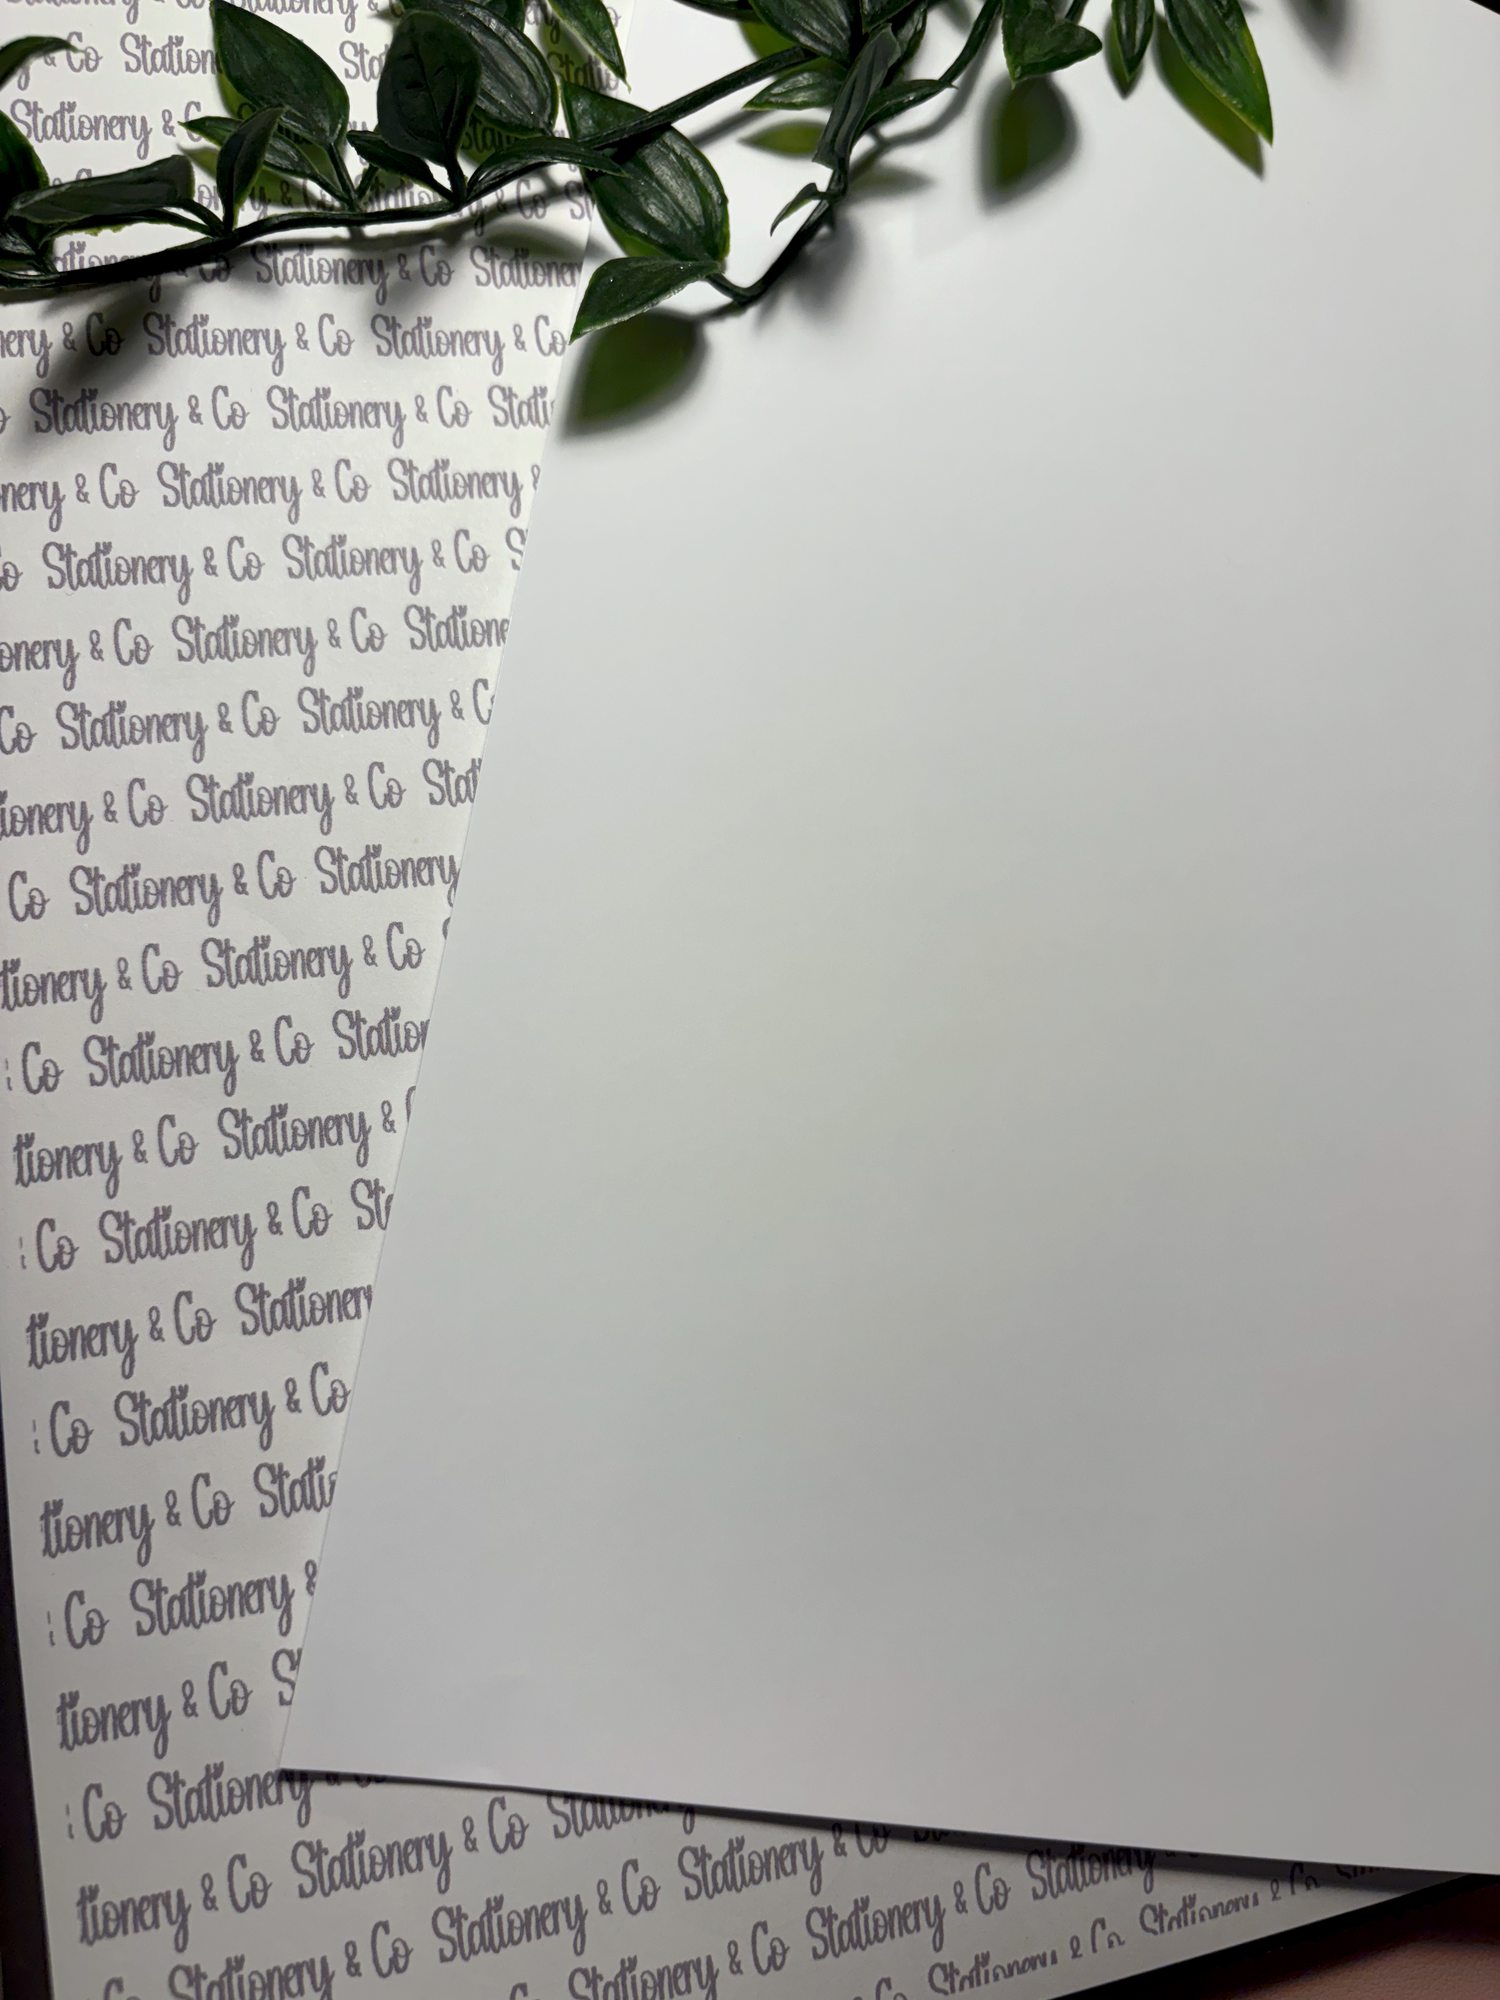 Co Stationery &
& Co Station Sta
Stationery & C
& Co Stationery & Co
Stationery & Co Stationer
nery & Co Stationery & Co Stationery & Co
Stationery & Co Stationery & Co Stati
nery & Co Stationery & Co Stationery &
Co Stationery & Co Stationery & Co S
onery & Co Stationery & Co Statione
Co Stationery & Co Stationery & C
tionery & Co Stationery & Co Stat
Co Stationery & Co Stationery
tionery & Co Stationery & Co
Co Stationery & Co Station
tionery & Co Stationery &
Co Stationery & Co Sta
tionery & Co Stationery
Co Stationery & Co
tionery & Co Stati
Co Stationery &
tionery & Co S
Co Stationery
tionery & Co Stationery & Co Stationery
Co Stationery & Co Stationery & Co Stationery & Co
Stationery & Co Stationery & Co Stationery
Co Stationery & Co